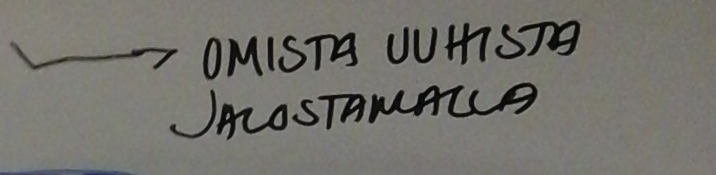 OMISTA UUHISTA
JALOSTAMALLA